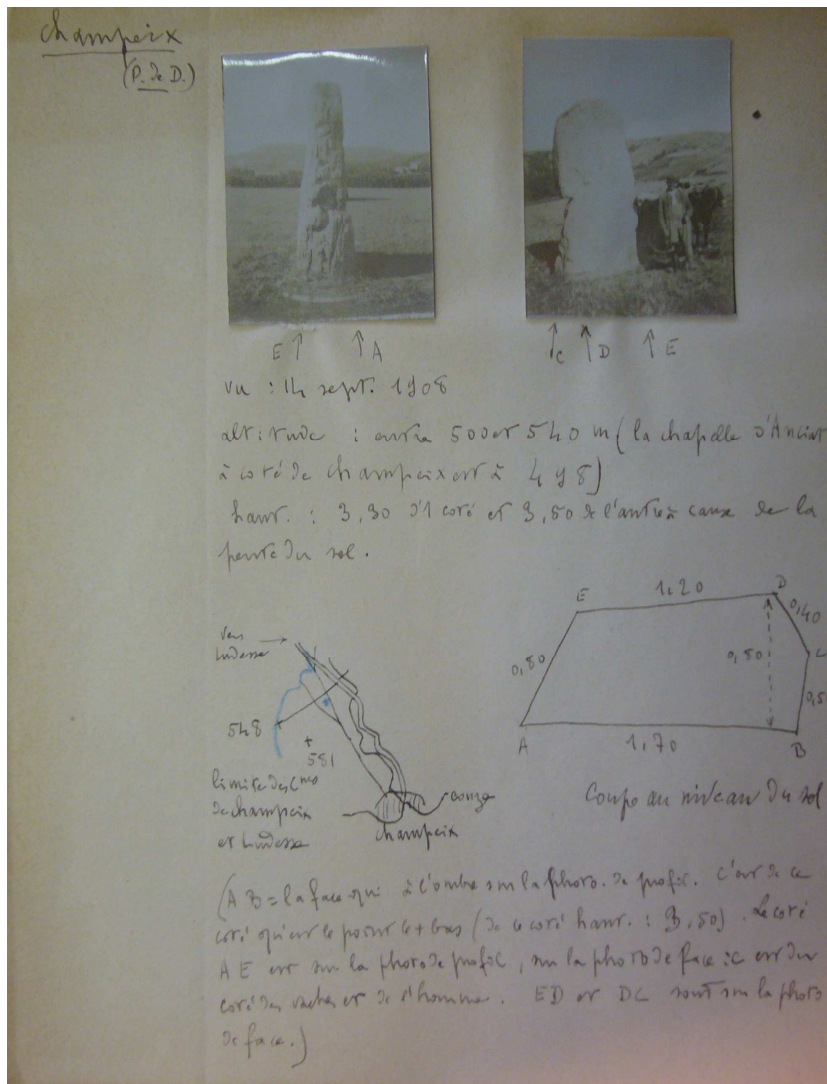 Champeix
(P. de D.)
E A
C D E
vu : 14 sept. 1908
altitude : entre 500 et 540 m (la chapelle d'Anciat
à coté de Champeix est à 498)
haut. : 3,30 d'1 coté et 3,50 de l'autre à cause de la
pente du sol.
vers
Ludesse
548
581
limite des Cnes
de Champeix
et Ludesse
couze
Champeix
E 1,20 D
0,40
0,80 0,80 C
0,5
A 1,70 B
Coupe au niveau du sol
(AB = la face qui à l'ombre sur la photo. de profil. C'est de ce
coté qu'est le point le + bas (de ce coté haut. : 3,50). Le coté
AE est sur la photo de profil, sur la photo de face ic est du
coté des vaches et de l'homme. ED et DC sont sur la photo
de face.)